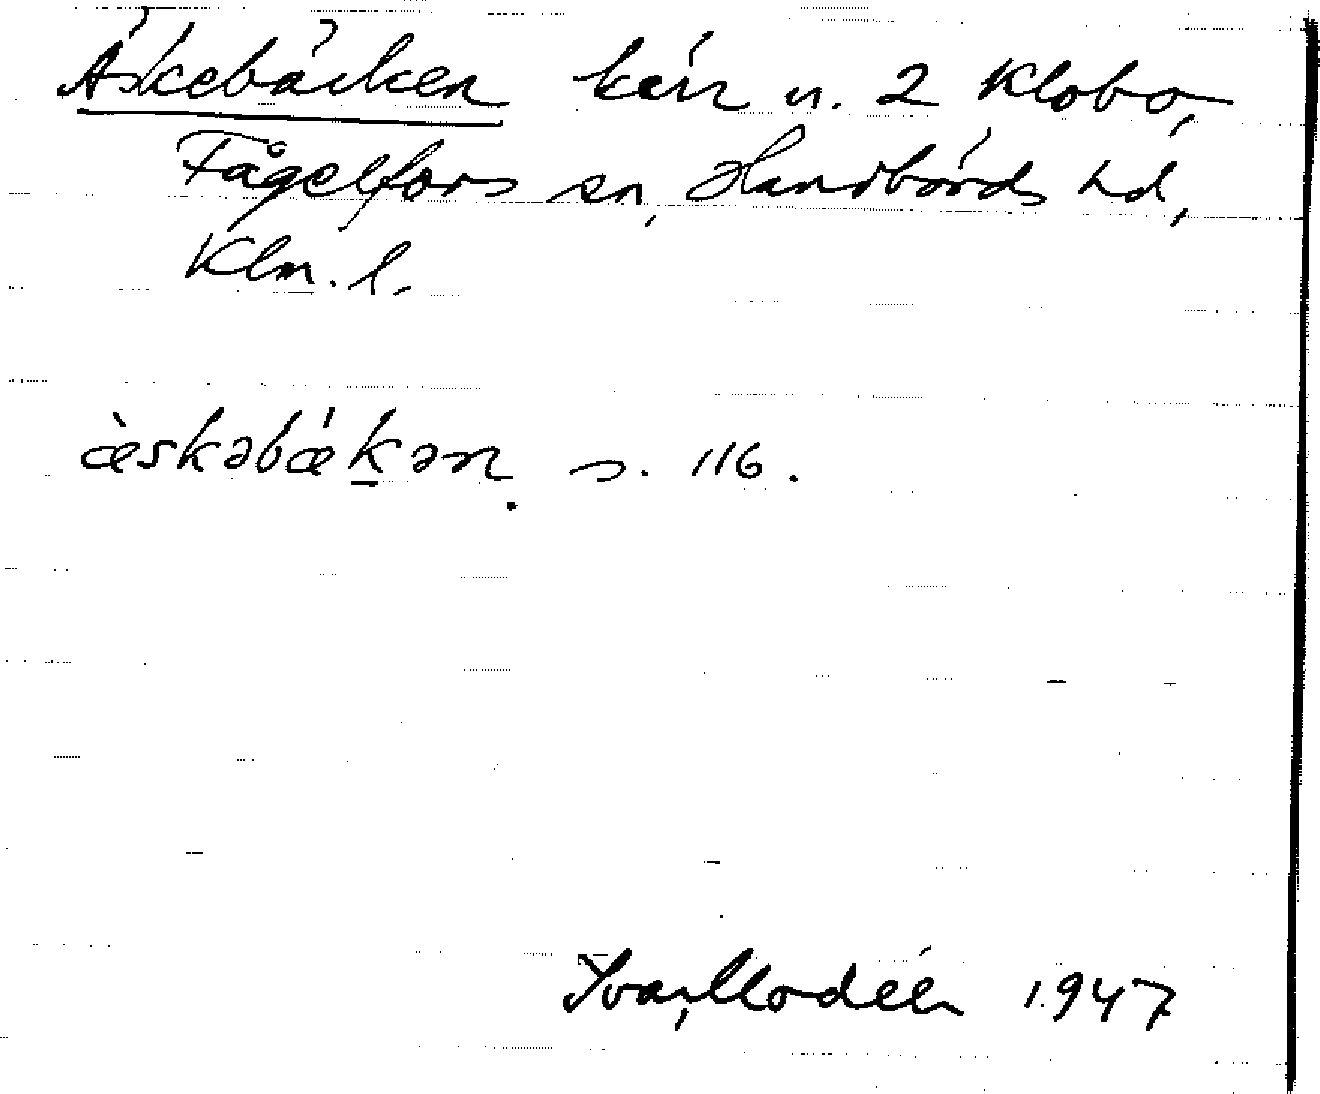 Äskebäcken kärr u. 2 Klobo,
Fågelfors sn, Handbörds hd,
Klm. l.
æ̀skəbǽk̠ən s. 116.
Ivar Modéer 1947